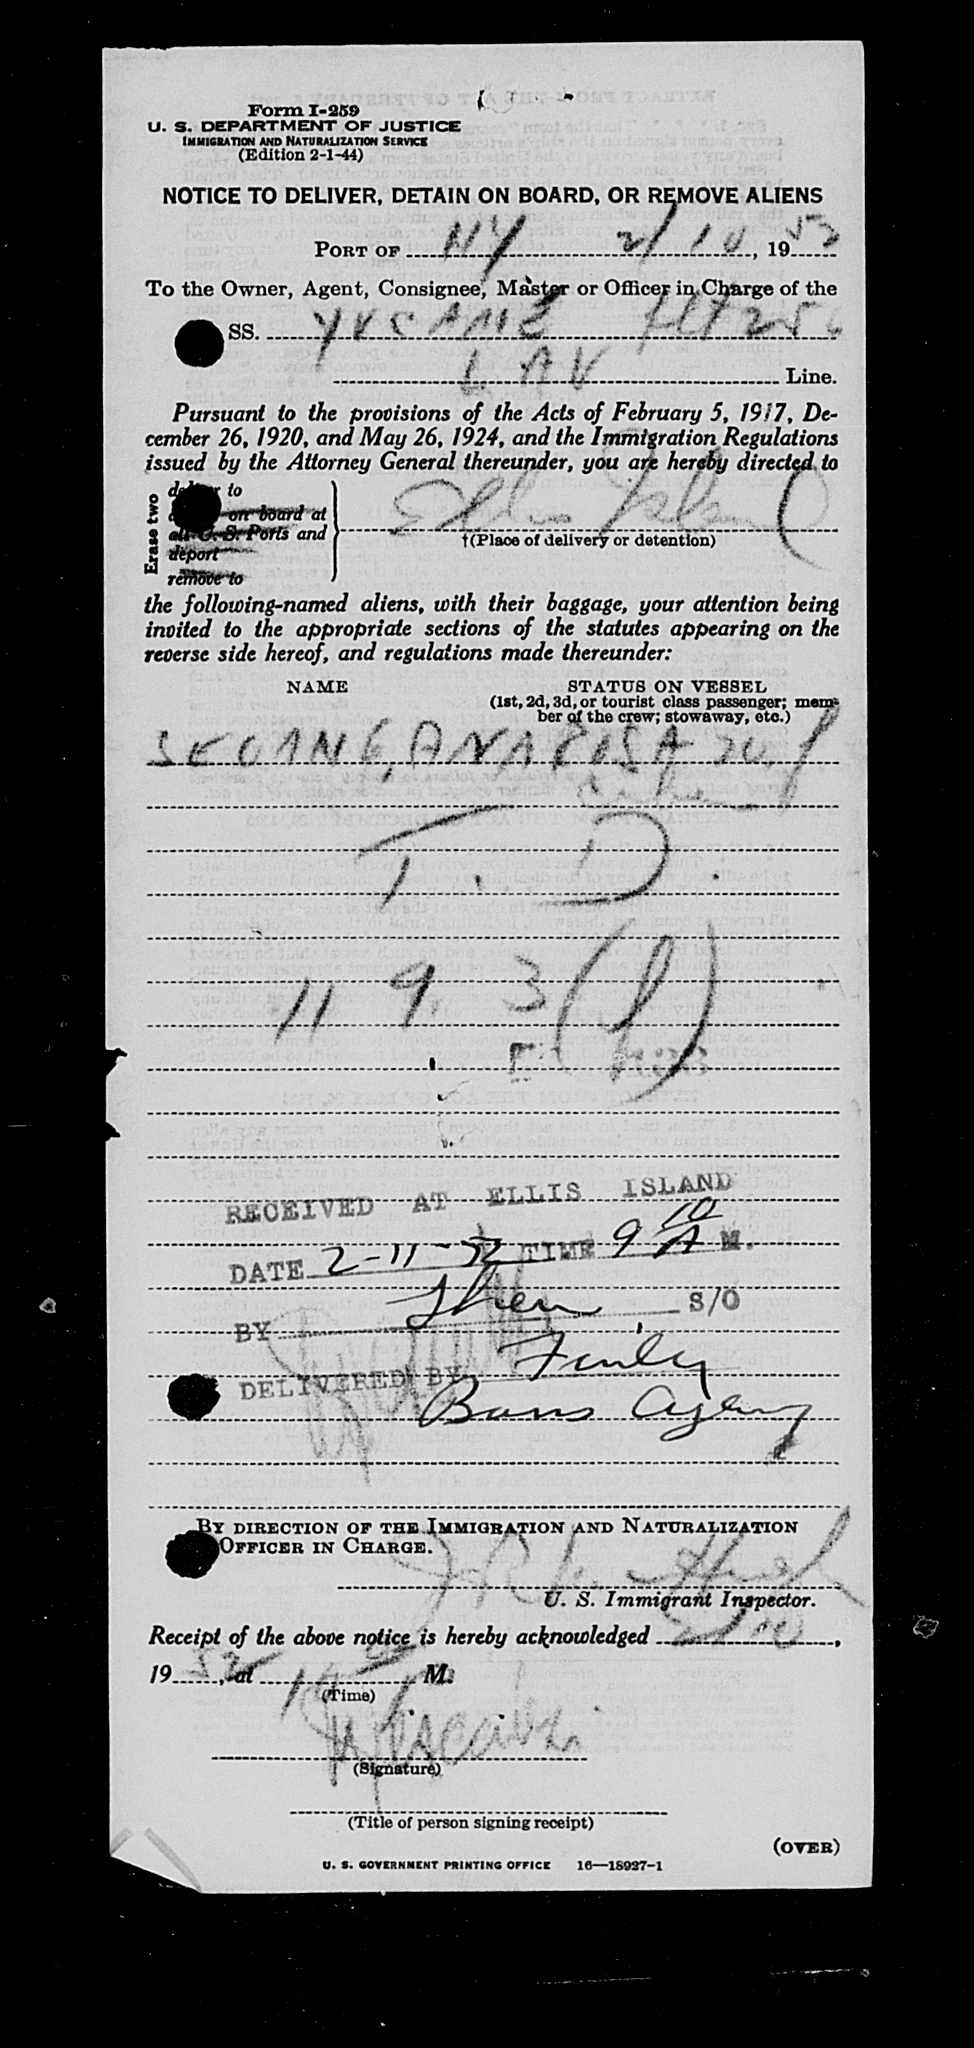 Form I-259
U. S. DEPARTMENT OF JUSTICE
IMMIGRATION AND NATURALIZATION SERVICE
(Edition 2-1-44)
NOTICE TO DELIVER, DETAIN ON BOARD, OR REMOVE ALIENS
PORT OF NY 2/10, 1952
To the Owner, Agent, Consignee, Master or Officer in Charge of the
SS. YVC AME Flt 256
LAV Line.
Pursuant to the provisions of the Acts of February 5, 1917, De-
cember 26, 1920, and May 26, 1924, and the Immigration Regulations
issued by the Attorney General thereunder, you are hereby directed to
Erase two
deliver to
on board at
all U. S. Ports and
deport
remove to
Ellis Island
†(Place of delivery or detention)
the following-named aliens, with their baggage, your attention being
invited to the appropriate sections of the statutes appearing on the
reverse side hereof, and regulations made thereunder:
NAME STATUS ON VESSEL
(1st, 2d, 3d, or tourist class passenger; mem-
ber of the crew; stowaway, etc.)
ANA ROSA
T. D.
11 9. 3 (f)
RECEIVED AT ELLIS ISLAND
DATE 2-11-52 TIME 9 10 A M.
BY S/O
DELIVERED BY Finley
Agency
BY DIRECTION OF THE IMMIGRATION AND NATURALIZATION
OFFICER IN CHARGE.
U. S. Immigrant Inspector.
Receipt of the above notice is hereby acknowledged 2/10,
1952, at M.
(Time)
(Signature)
(Title of person signing receipt)
(OVER)
U. S. GOVERNMENT PRINTING OFFICE 16—18927-1